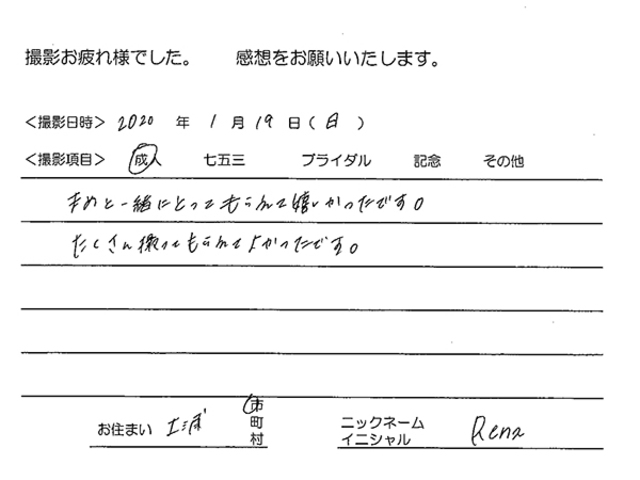 撮影お疲れ様でした。 感想をお願いいたします。
<撮影日時> 2020 年 1 月 19 日(日)
<撮影項目> 成人 七五三 ブライダル 記念 その他
まめと一緒にとってもらえて嬉しかったです。
たくさん撮ってもらえてよかったです。
お住まい 土浦 市町村 ニックネーム イニシャル Rena